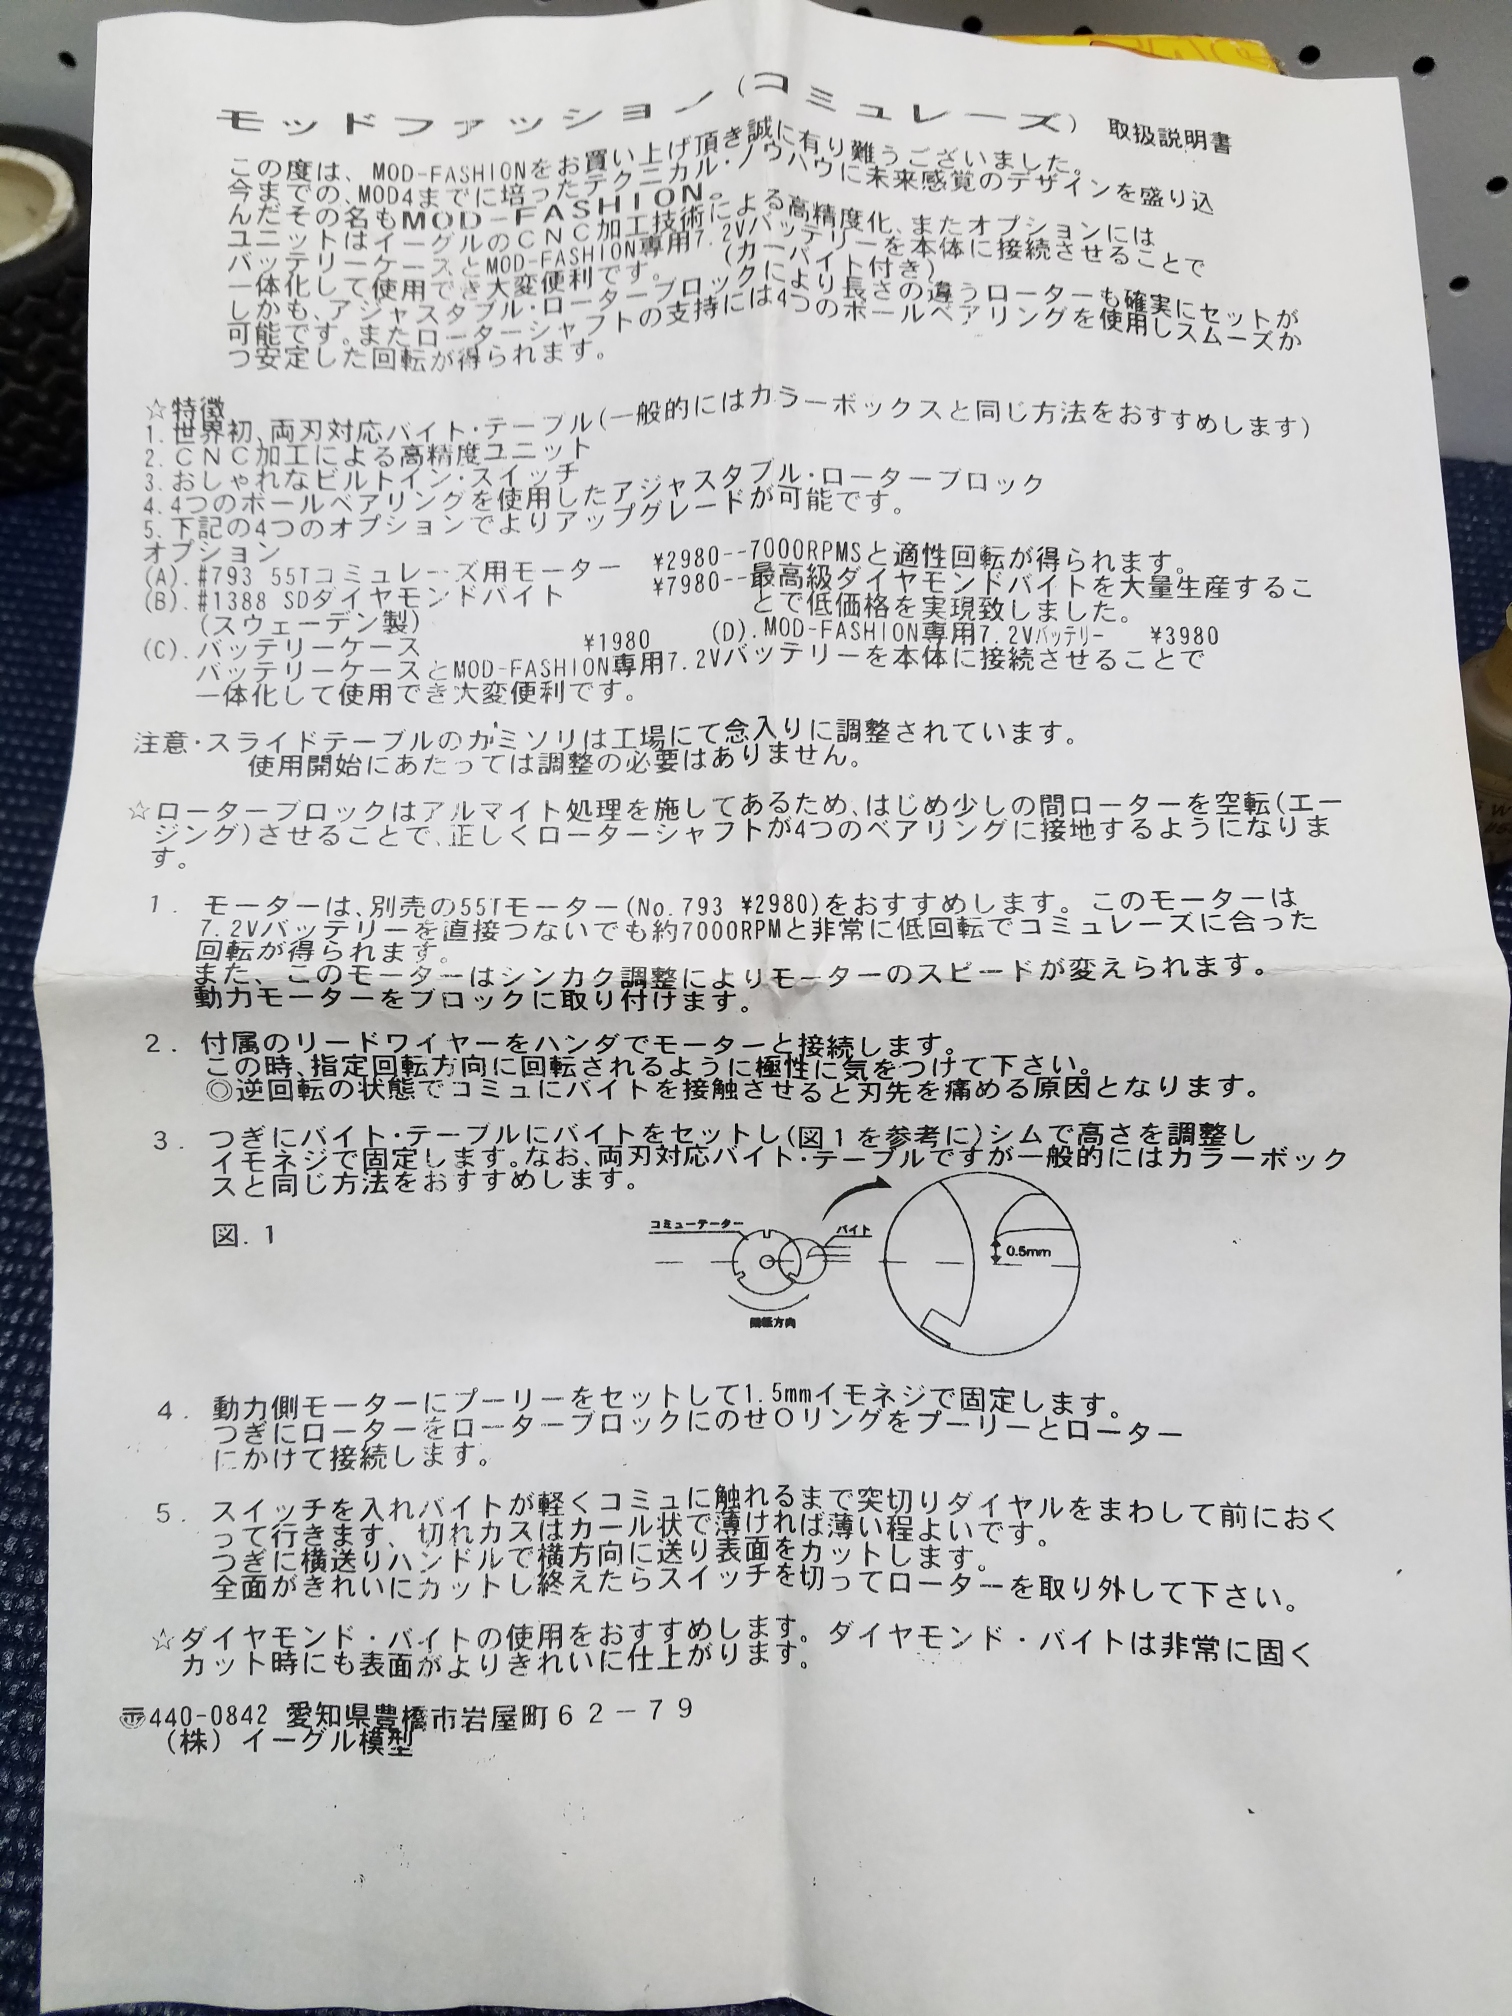 モッドファッション(コミュレーズ) 取扱説明書
この度は、MOD-FASHIONをお買い上げ頂き誠に有り難うございました。
今までの、MOD4までに培ったテクニカル・ノウハウに未来感覚のデザインを盛り込
んだその名もMOD-FASHION。
ユニットはイーグルのCNC加工技術による高精度化、またオプションには
バッテリーケースとMOD-FASHION専用7.2Vバッテリーを本体に接続させることで
一体化して使用でき大変便利です。 (カーバイト付き)
しかも、アジャスタブル・ローターブロックにより長さの違うローターも確実にセットが
可能です。またローターシャフトの支持には4つのボールベアリングを使用しスムーズか
つ安定した回転が得られます。
☆特徴
1.世界初、両刃対応バイト・テーブル(一般的にはカラーボックスと同じ方法をおすすめします)
2.CNC加工による高精度ユニット
3.おしゃれなビルトイン・スイッチ
4.4つのボールベアリングを使用したアジャスタブル・ローターブロック
5.下記の4つのオプションでよりアップグレードが可能です。
オプション
(A).#793 55Tコミュレーズ用モーター ¥2980--7000RPMSと適性回転が得られます。
(B).#1388 SDダイヤモンドバイト ¥7980--最高級ダイヤモンドバイトを大量生産するこ
(スウェーデン製) とで低価格を実現致しました。
(C).バッテリーケース ¥1980 (D).MOD-FASHION専用7.2Vバッテリー ¥3980
バッテリーケースとMOD-FASHION専用7.2Vバッテリーを本体に接続させることで
一体化して使用でき大変便利です。
注意・スライドテーブルのカミソリは工場にて念入りに調整されています。
使用開始にあたっては調整の必要はありません。
☆ローターブロックはアルマイト処理を施してあるため、はじめ少しの間ローターを空転(エー
ジング)させることで、正しくローターシャフトが4つのベアリングに接地するようになりま
す。
1. モーターは、別売の55Tモーター(No.793 ¥2980)をおすすめします。このモーターは
7.2Vバッテリーを直接つないでも約7000RPMと非常に低回転でコミュレーズに合った
回転が得られます。
また、このモーターはシンカク調整によりモーターのスピードが変えられます。
動力モーターをブロックに取り付けます。
2. 付属のリードワイヤーをハンダでモーターと接続します。
この時、指定回転方向に回転されるように極性に気をつけて下さい。
◎逆回転の状態でコミュにバイトを接触させると刃先を痛める原因となります。
3. つぎにバイト・テーブルにバイトをセットし(図1を参考に)シムで高さを調整し
イモネジで固定します。なお、両刃対応バイト・テーブルですが一般的にはカラーボック
スと同じ方法をおすすめします。
図.1
コミューテーター
バイト
0.5mm
回転方向
4. 動力側モーターにプーリーをセットして1.5mmイモネジで固定します。
つぎにローターをローターブロックにのせOリングをプーリーとローター
にかけて接続します。
5. スイッチを入れバイトが軽くコミュに触れるまで突切りダイヤルをまわして前におく
って行きます、切れカスはカール状で薄ければ薄い程よいです。
つぎに横送りハンドルで横方向に送り表面をカットします。
全面がきれいにカットし終えたらスイッチを切ってローターを取り外して下さい。
☆ダイヤモンド・バイトの使用をおすすめします。ダイヤモンド・バイトは非常に固く
カット時にも表面がよりきれいに仕上がります。
〒440-0842 愛知県豊橋市岩屋町62-79
(株)イーグル模型